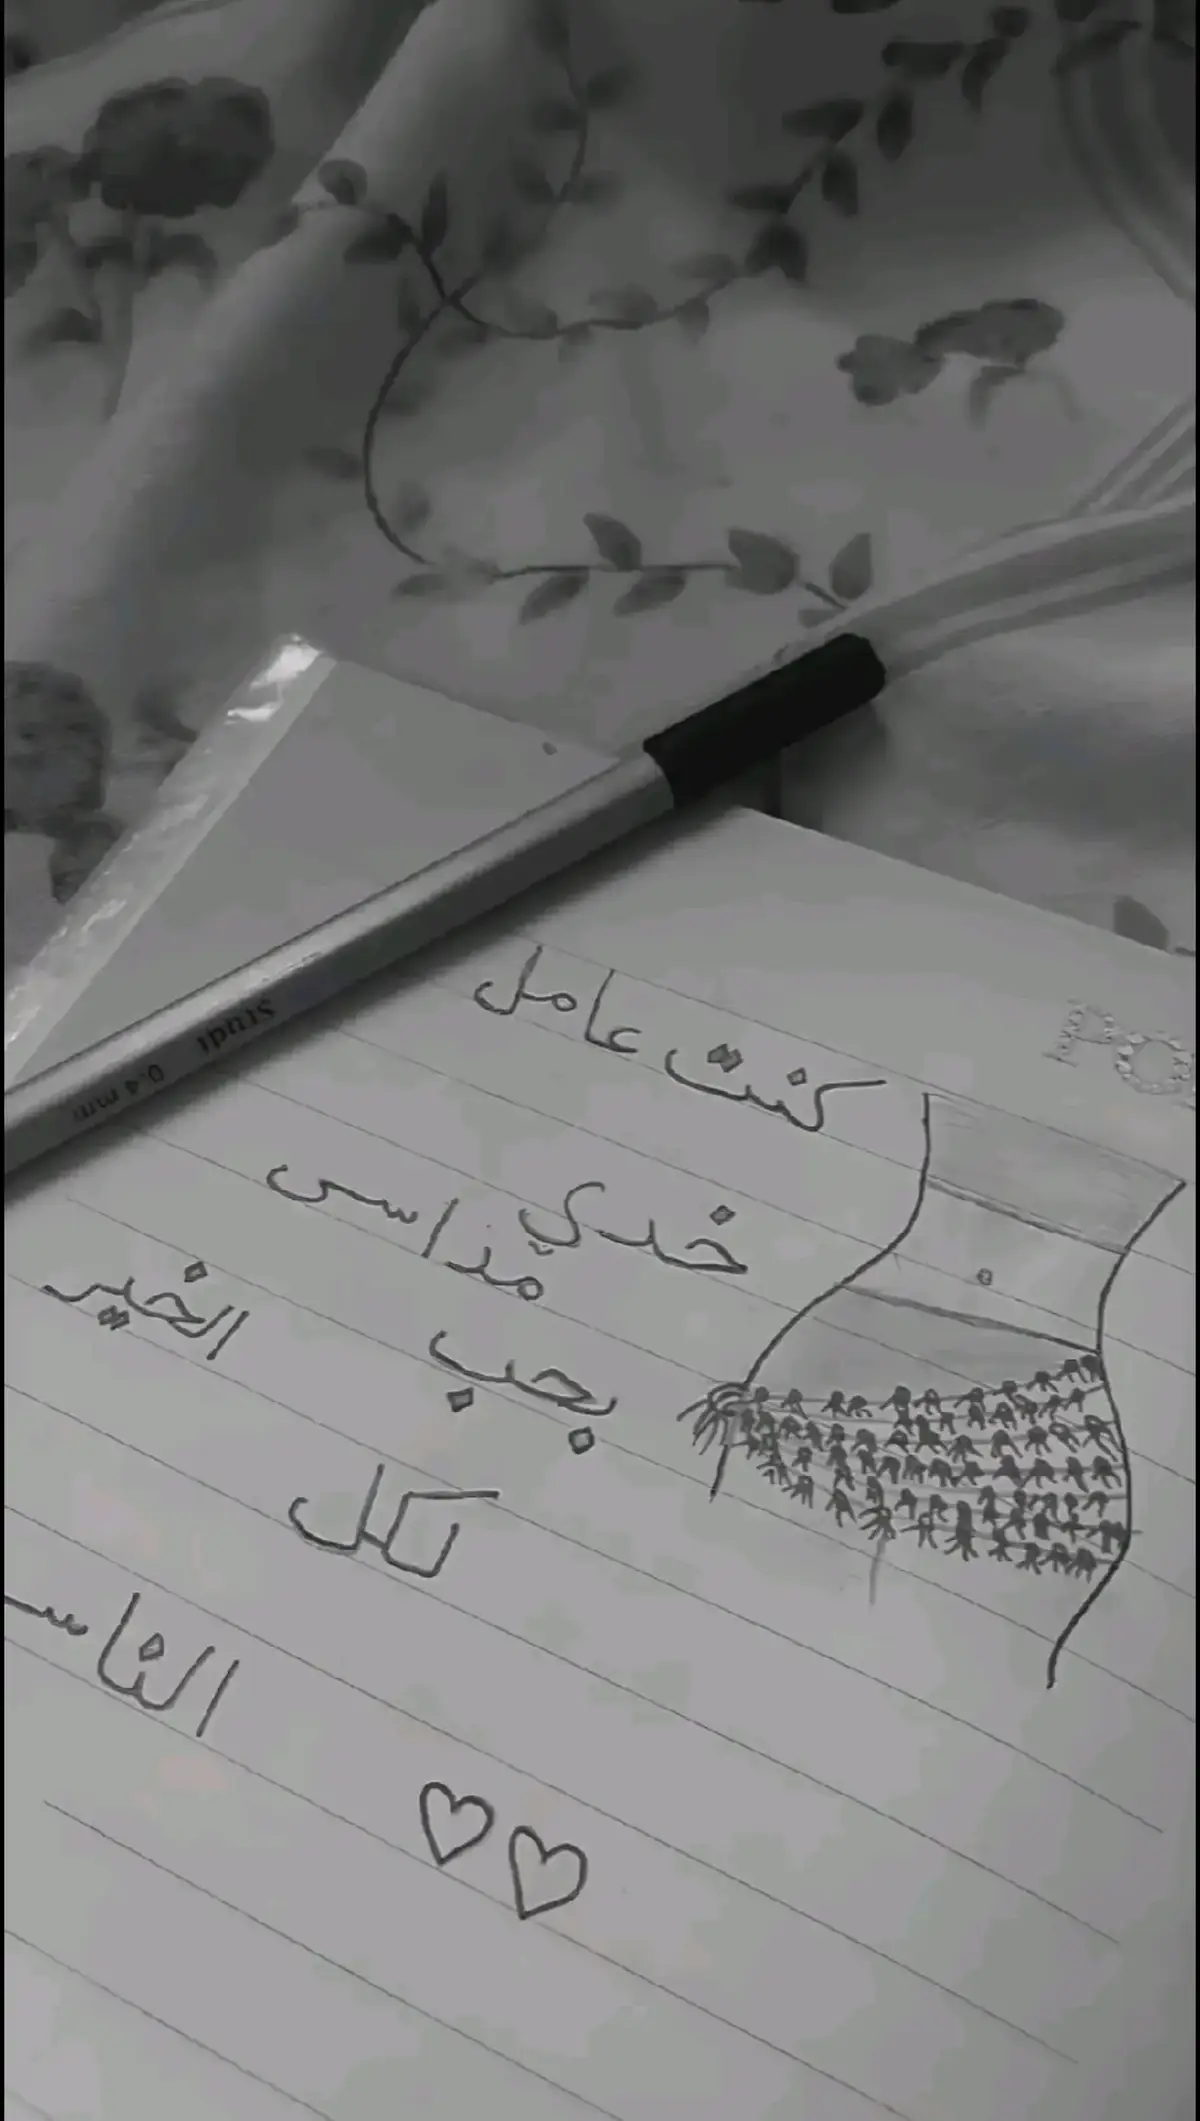 كنت عامل
خدي
مداسى
بحب
الخير
لكل
الناس
Stndi 0.4 mm